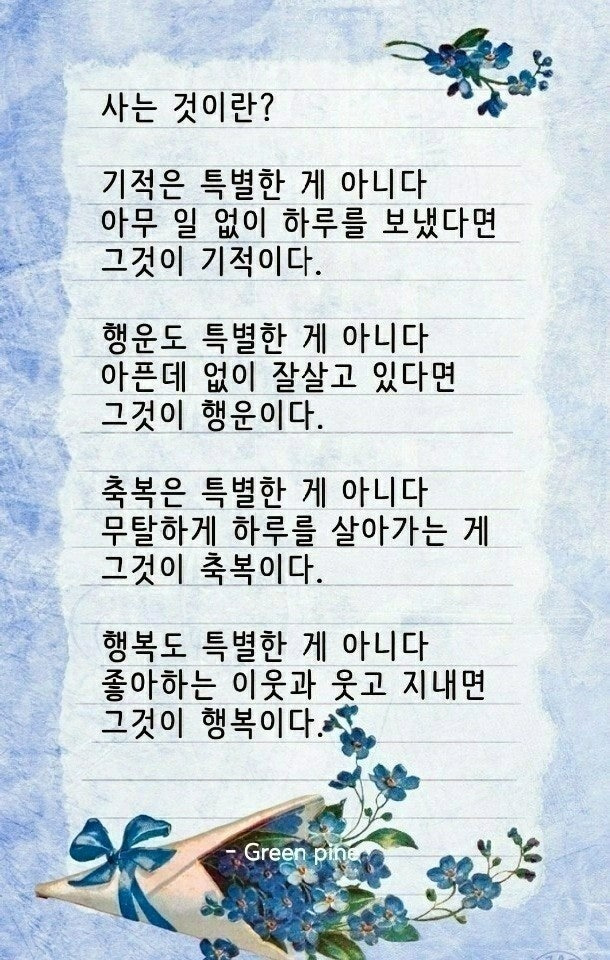 사는 것이란?
기적은 특별한 게 아니다
아무 일 없이 하루를 보냈다면
그것이 기적이다.
행운도 특별한 게 아니다
아픈데 없이 잘살고 있다면
그것이 행운이다.
축복은 특별한 게 아니다
무탈하게 하루를 살아가는 게
그것이 축복이다.
행복도 특별한 게 아니다
좋아하는 이웃과 웃고 지내면
그것이 행복이다.
- Green pine